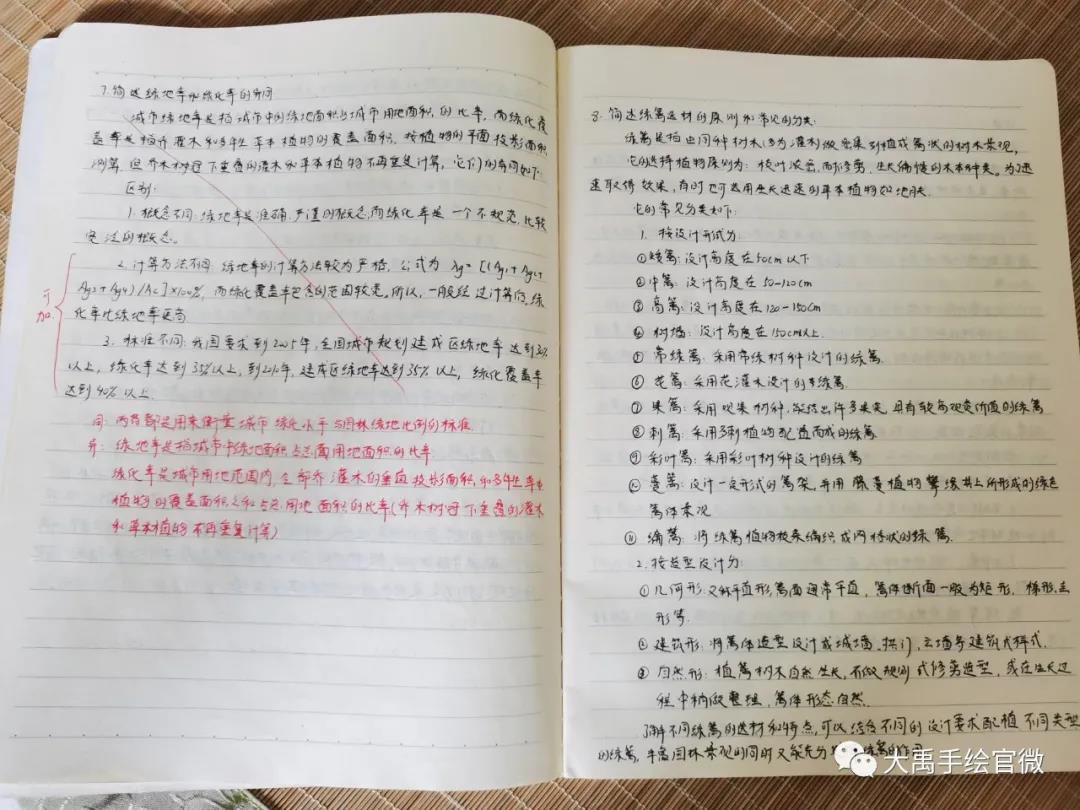 7. 简述绿地率和绿化率的异同
城市绿地率是指城市中的绿地面积占城市用地面积的比率，而绿化覆
盖率是指乔灌木和多年生草本植物的覆盖面积，按植物的平面投影面积
测算，但乔木树冠下重叠的灌木和草本植物不再重复计算，它们的异同如下：
区别：
1. 概念不同：绿地率是准确、严谨的概念，而绿化率是一个不规范，比较
宽泛的概念。
2. 计算方法不同：绿地率的计算方法较为严格，公式为 λg=[(Ag1+Ag2+
Ag3+Ag4)/Ac]×100%，而绿化覆盖率包含的范围较宽。所以，一般经过计算后，绿
化率比绿地率更高
3. 标准不同：我国要求到2005年，全国城市规划建成区绿地率达到30%
以上，绿化率达到35%以上，到2010年，建成区绿地率达到35%以上，绿化覆盖率
达到40%以上.
可
加.
同：两者都是用来衡量城市绿化水平与园林绿地比例的标准
异：绿地率是指城市中绿地面积占总用地面积的比率
绿化率是城市用地范围内，全部乔灌木的垂直投影面积和多年生草本
植物的覆盖面积之和占总用地面积的比率(乔木树冠下重叠的灌木
和草本植物不再重复计算)
8. 简述绿篱选材的原则和常见的分类.
绿篱是指由同种树木(多为灌木)做密集列植成篱状的树木景观，
它的选择植物原则为：枝叶浓密，耐修剪，生长偏慢的木本种类。为了迅
速取得效果，有时也可选用生长迅速的草本植物如地肤.
它的常见分类如下：
1. 按设计形式分
①矮篱：设计高度在50cm以下
②中篱：设计高度在50-120cm
③高篱：设计高度在120-150cm
④树墙：设计高度在150cm以上.
⑤常绿篱：采用常绿树种设计的绿篱
⑥花篱：采用花灌木设计的绿篱.
⑦果篱：采用观果树种，能结出许多果实，且有较高观赏价值的绿篱
⑧刺篱：采用多刺植物配置而成的绿篱
⑨彩叶篱：采用彩叶树种设计的绿篱
⑩蔓篱：设计一定形式的篱架，并用藤蔓植物攀缘其上所形成的绿色
篱体景观
⑪编篱：将绿篱植物枝条编织成网格状的绿篱.
2. 按造型设计分：
①几何形：又称平直形，篱面通常平直，篱体断面一般为矩形，梯形
形等.
②建筑形：将篱体造型设计成城墙，拱门，云墙等建筑式样式.
③自然形：植篱树木自然生长，不做规则式修剪造型，或在生长过
程中稍做整理，篱体形态自然.
了解不同绿篱的选材和特点，可以结合不同的设计要求配植不同类型
的绿篱，丰富园林景观的同时又能充分
大禹手绘官微